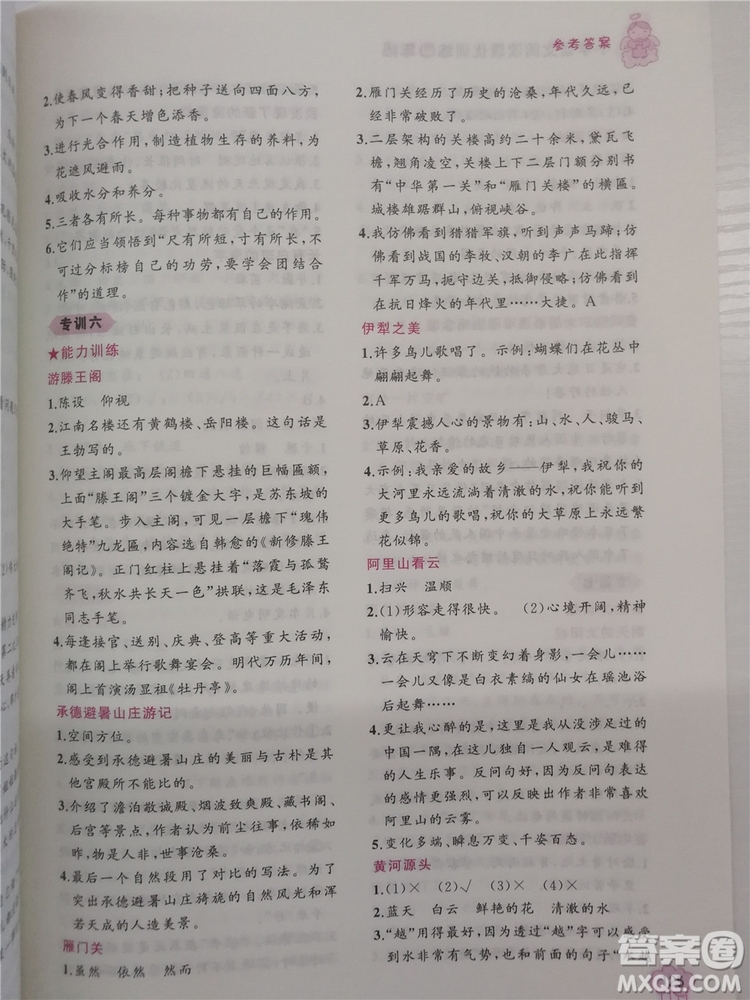 参考答案
2.使春风变得香甜；把种子送向四面八方，
为下一个春天增色添香。
3.进行光合作用，制造植物生存的养料，为
花遮风避雨。
4.吸收水分和养分。
5.三者各有所长。每种事物都有自己的作用。
6.它们应当领悟到“尺有所短，寸有所长”，不
可过分标榜自己的功劳，要学会团结合
作”的道理。
专训六
★能力训练
游滕王阁
1.陈设　仰视
2.江南名楼还有黄鹤楼、岳阳楼。这句话是
王勃写的。
3.仰望主阁最高层阁檐下悬挂的巨幅匾额，
上面“滕王阁”三个镀金大字，是苏东坡的
大手笔。步入主阁，可观赏一层檐下“瑰伟
绝特”九龙匾，内容选自韩愈的《新修滕王
阁记》。正门红柱上悬挂着“落霞与孤鹜
齐飞，秋水共长天一色”拱联，这是毛泽东
同志手笔。
4.每逢接官、送别、庆典、登高等重大活动，
都在阁上举行歌舞宴会。明代万历年间，
阁上首演汤显祖《牡丹亭》。
承德避暑山庄游记
1.空间方位。
2.感受到承德避暑山庄的美丽与古朴是其
他宫殿所不能比的。
3.介绍了澹泊敬诚殿、烟波致爽殿、藏书阁、
后宫等景点，作者认为前尘往事，依稀如
昨，物是人非，世事沧桑。
4.最后一个自然段用了对比的写法。为了
突出承德避暑山庄旖旎的自然风光和浑
若天成的人造美景。
雁门关
1.虽然　依然　然而
2.雁门关经历了历史的沧桑，年代久远，已
经非常破败了。
3.二层架构的关楼高约二十余米，黛瓦飞
檐，翘角凌空，关楼上下二层门额分别书
有“中华第一关”和“雁门关楼”的横匾。
城楼雄踞群山，俯视峡谷。
4.我仿佛看到猎猎军旗，听到声声马蹄；仿
佛看到战国的李牧、汉朝的李广在此指挥
千军万马，扼守边关，抵御侵略；仿佛看到
在抗日烽火的年代里……大捷。A
伊犁之美
1.许多鸟儿歌唱了。示例：蝴蝶们在花丛中
翩翩起舞。
2.A
3.伊犁震撼人心的景物有：山、水、人、骏马、
草原、花香。
4.示例：我亲爱的故乡——伊犁，祝你的
大河里永远流淌着清澈的水，祝你能听到
更多鸟儿的歌唱，祝你的大草原上永远繁
花似锦。
阿里山看云
1.扫兴　温顺
2.(1)形容走得很快。　(2)心境开阔，精神
愉快。
3.云在天穹下不断变幻着身影，一会儿……
一会儿又像是白衣素缟的仙女在瑶池浴
后起舞……
4.更让我心醉的是，这里是我从没涉足过的
中国一隅，在这儿独自一人观云，是难得
的人生乐事。反问句好，因为反问句表达
的感情更强烈，写出了作者非常喜欢
阿里山的云雾。
5.变化多端、瞬息万变、千姿百态。
黄河源头
1.(1)×　(2)√　(3)×　(4)×
2.蓝天　白云　鲜艳的花　清澈的水
3.“越”用得最好，因为通过“越”字可以感受
到水非常有气势，也和前面的句子“
答案圈
MXQE.COM